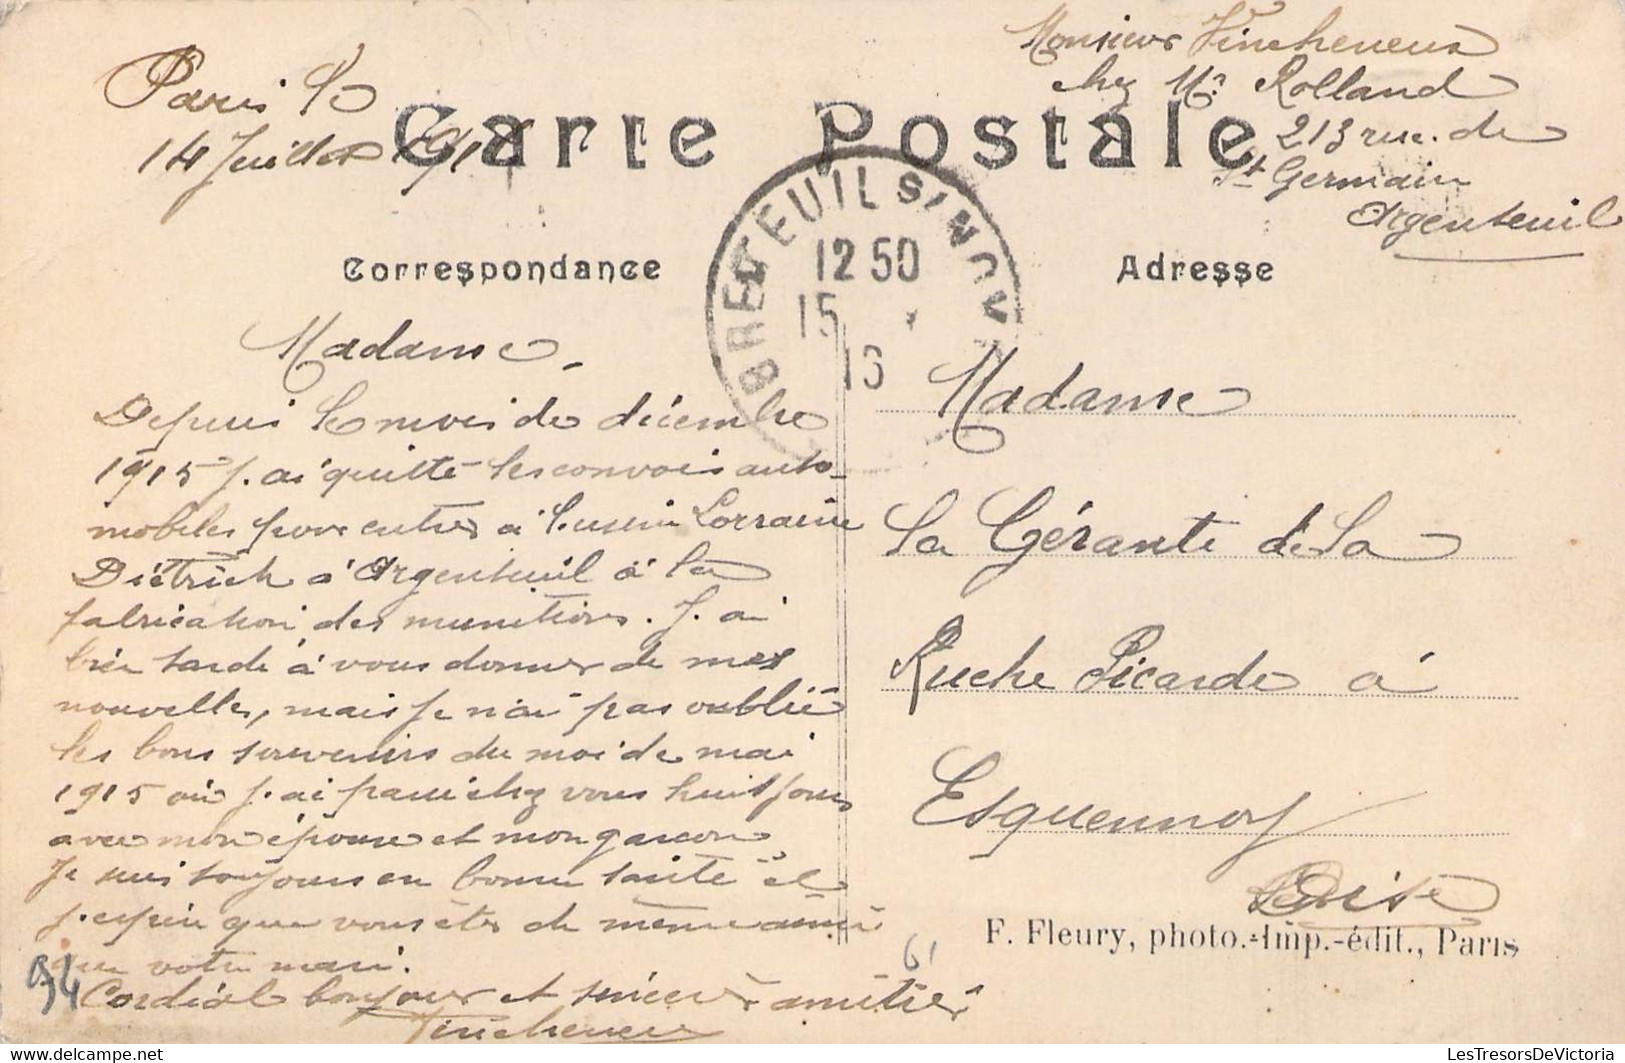 Paris le
14 Juillet 191
Monsieur Fincheneux
chez Mr. Rolland
213 rue. de
St Germain
Argenteuil
Carte Postale
BRETEUIL S/NOYE
12 50
15
16
Correspondance
Adresse
Madame.
Depuis le mois de décembre
1915 j.ai quitté les convois auto-
mobiles pour entrer à l.usine Lorraine
Diétrich à Argenteuil à la
fabrication des munitions. J.ai
bien tardé à vous donner de mes
nouvelles, mais je n'ai pas oublié
les bons souvenirs du moi de mai
1915 où j.ai passé chez vous huit jours
avec mon épouse et mon garcon
Je suis toujours en bonne santé et
j.espère que vous êtes de même ainsi
que votre mari.
Cordial bonjour et sincère amitié
Fincheneux
Madame
La Gérante de La
Ruche Picarde à
Esquennoy
Oise
F. Fleury, photo.-Imp.-édit., Paris
61
94
LesTresorsDeVictoria | www.delcampe.net
LesTresorsDeVictoria